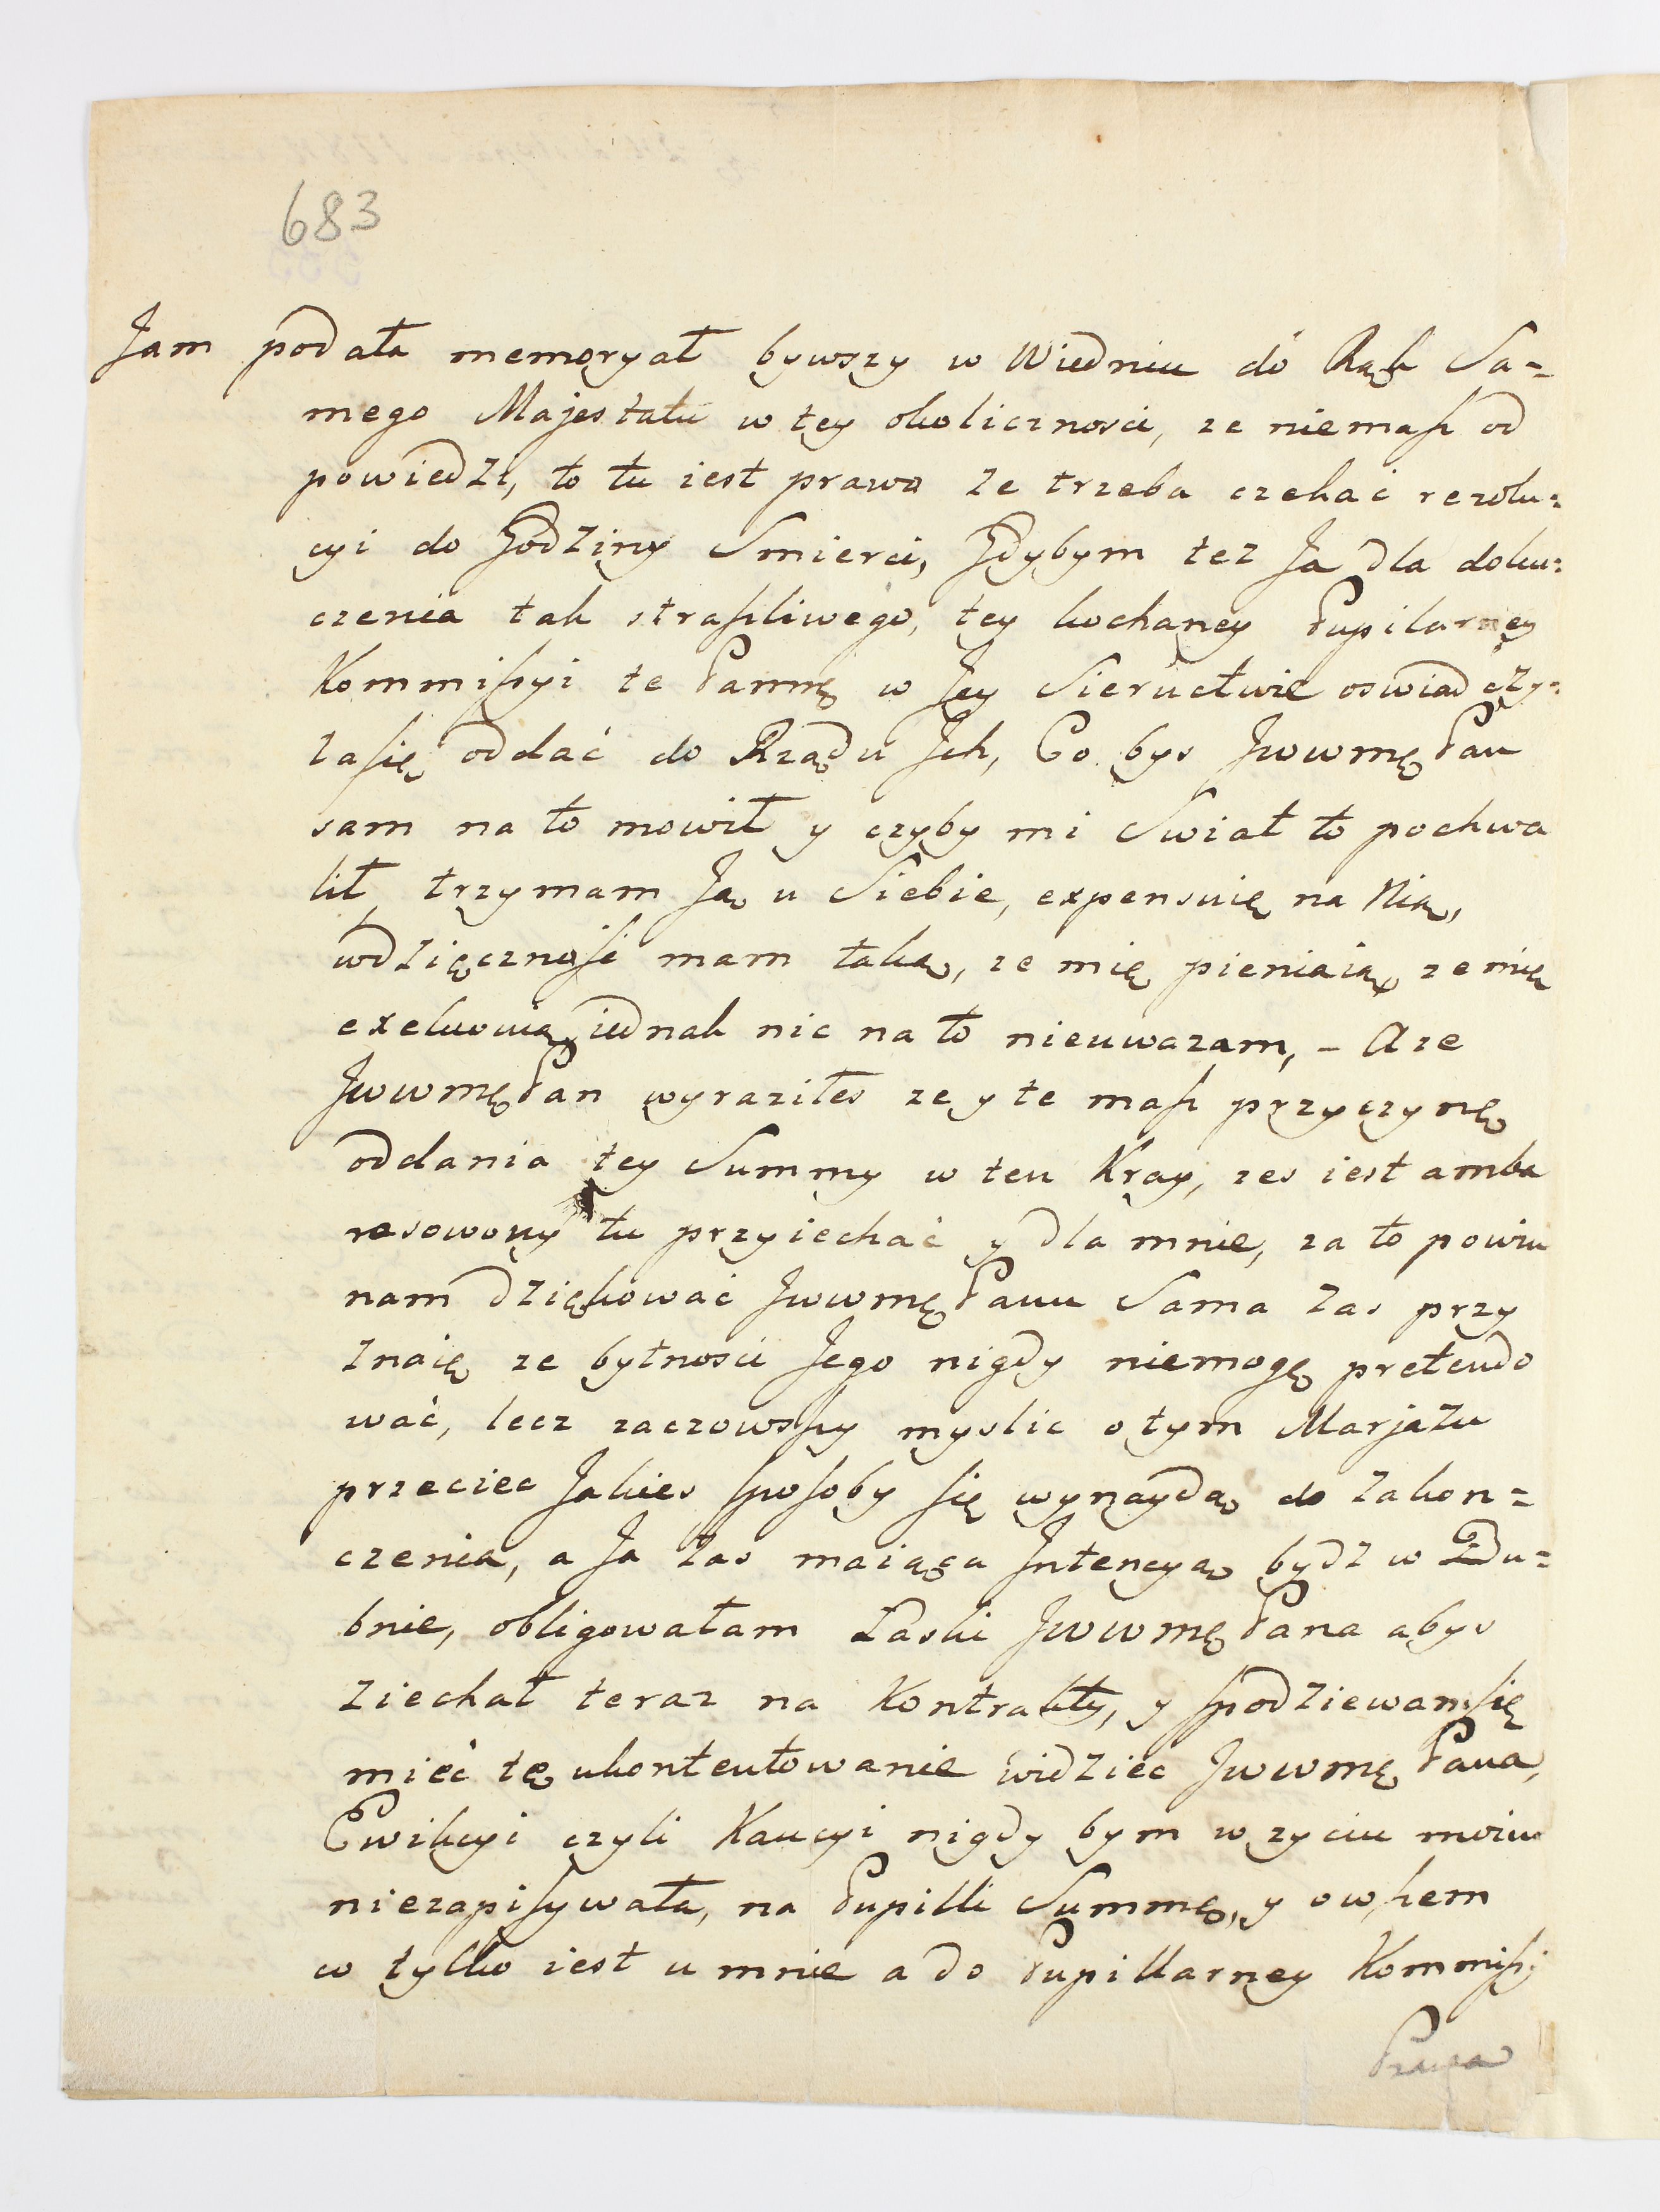 683
Jam podała memoryał bywszy w Wiedniu do Rąk Sa=
mego Majestatu w tey okolicznosci, ze niemasz od
powiedzi, to tu iest prawo ze trzeba czekać rezolu=
cyi do Godziny Smierci, Gdybym tez Ja dla doku=
czenia tak straszliwego, tey kochaney Pupilarney
Kommissyi te Pannę w Jey Sieructwie oswiadczy=
łasię oddać do Rządu Jch, Co bys JwwmęPan
sam na to mowił y czyby mi Swiat to pochwa
lił, trzymam Ją u Siebie, expensuię na Nią,
wdzięcznosc mam taką, ze mię pieniaią, ze mię
exekwuią, iednak nic na to nieuwazam, – A ze
JwwmęPan wyraziłes ze y te masz przyczynę
oddania tey Summy w ten Kray, zes iest amba
rasowony tu przyiechać y dla mnie, za to powin
nam dziękować Jwwmę Panu Sama zas przy
znaię ze bytnosci Jego nigdy niemogę pretendo
wać, lecz zaczowszy myslic o tym Marjazu
przeciec Jakies sposoby się wynaydą do zakon=
czenia, a Ja zas maiąca Jntencyą bydz w Du=
bnie, obligowałam Łaski Jwwmę Pana abys
ziechał teraz na Kontrakty, y spodziewamsię
mieć tę ukontentowanie widziec Jwwmę Pana,
Ewikcyi czyli Kaucyi nigdy bym w zyciu moim
niezapisywała, na Pupilli Summę, y owszem
co tylko iest u mnie a do Pupillarney Kommissyi
Prawa